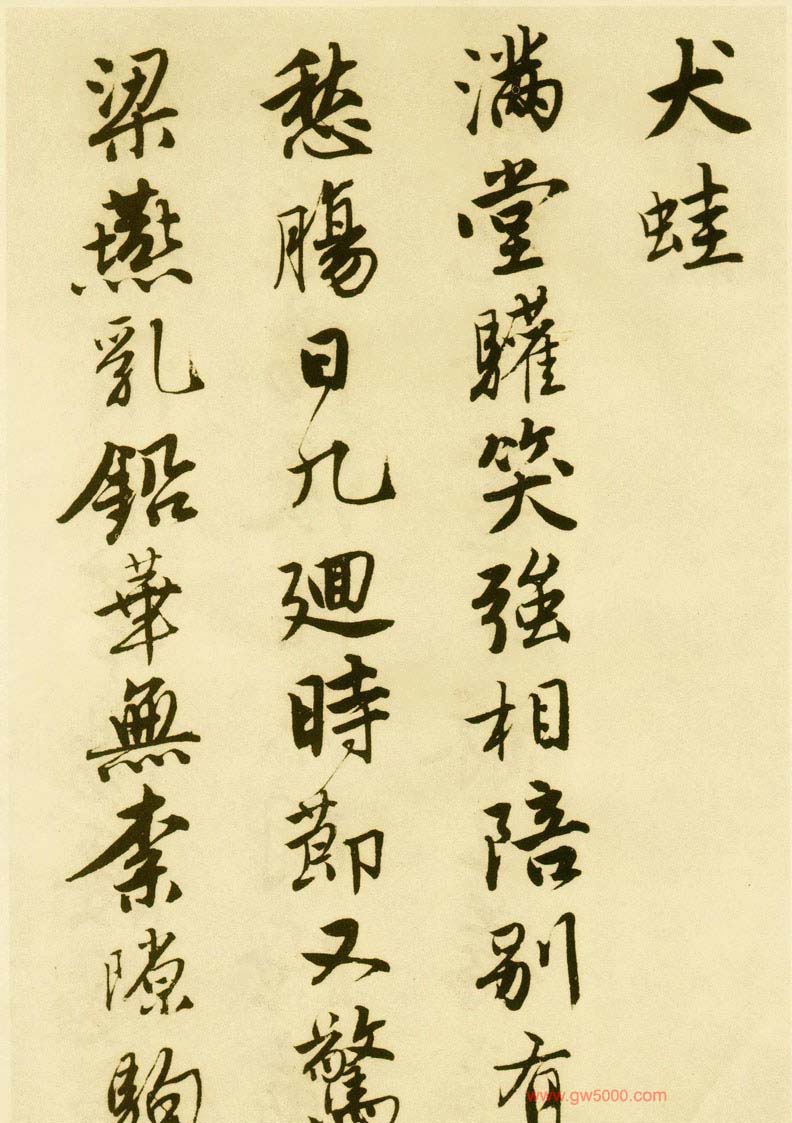 犬蛙
滿堂驩笑強相陪别有
愁腸日九廻時莭又驚
梁燕乳鉛華無柰隙駒
www.gw5000.com